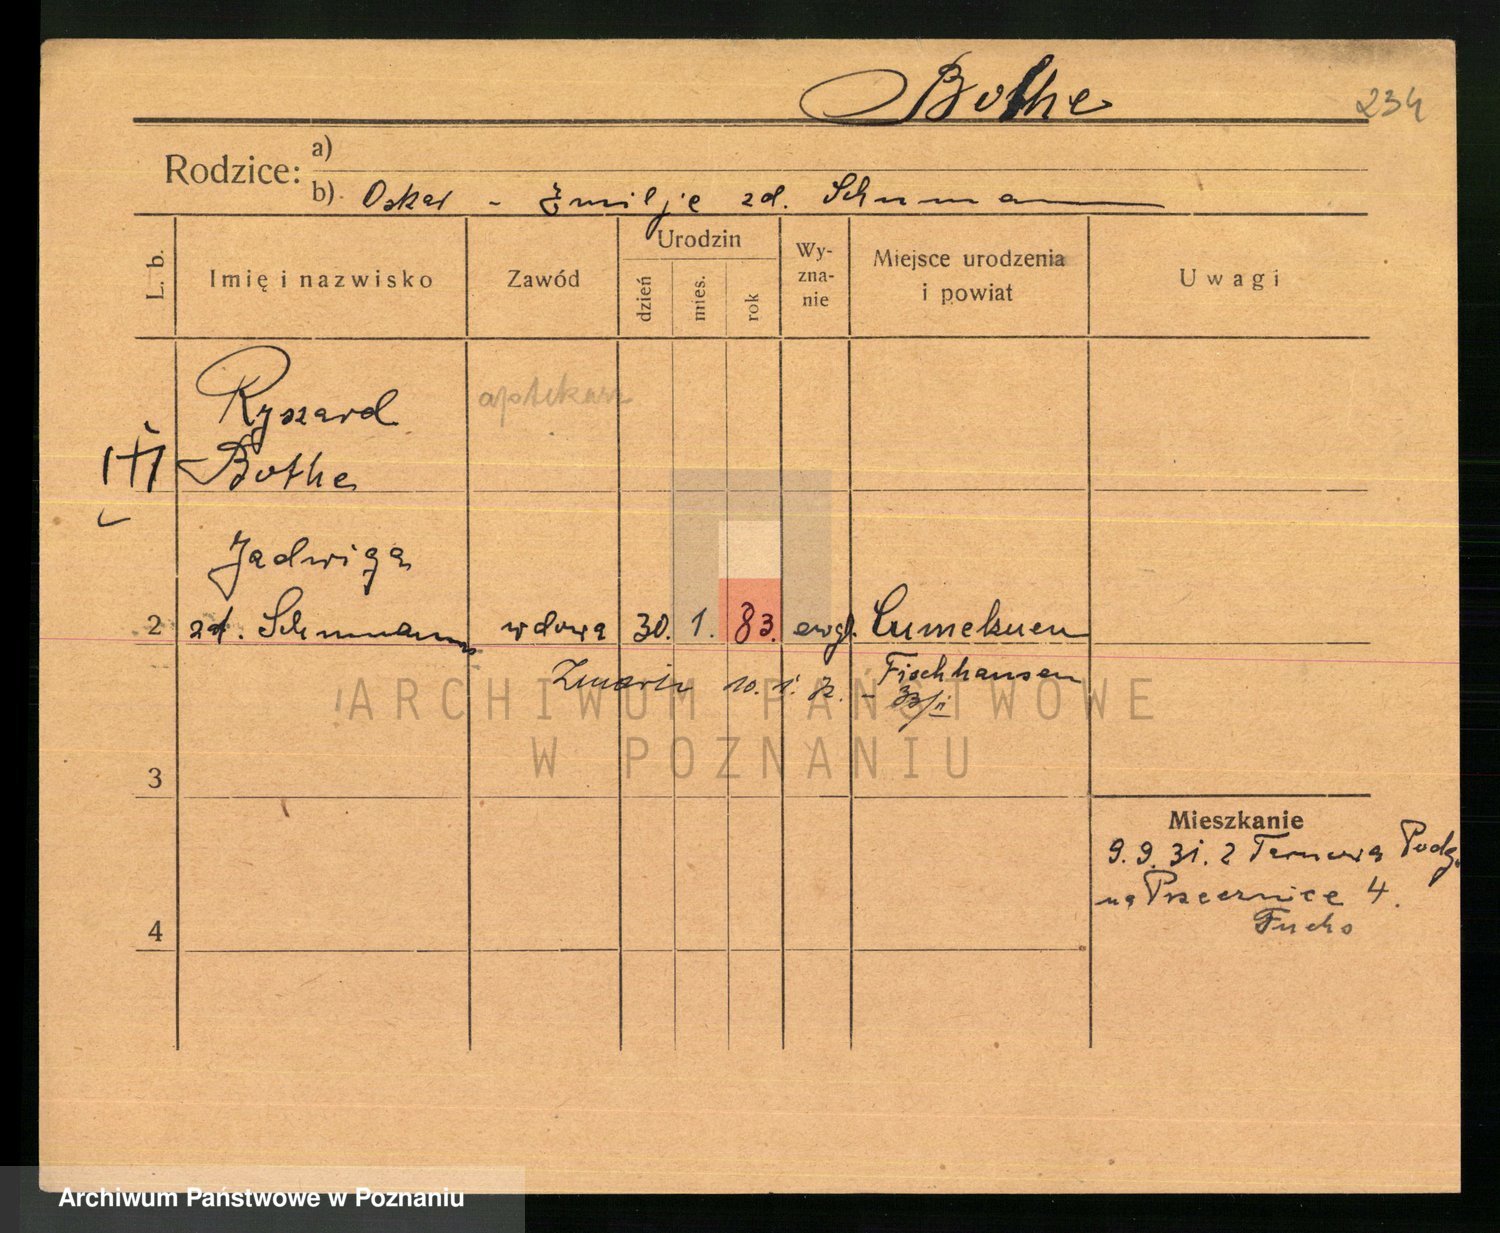 Bothe
234
Rodzice:
a)
b) Oskar - Emilje zd. Schumann
L. b.
Imię i nazwisko
Zawód
Urodzin
dzień
mies.
rok
Wy-
zna-
nie
Miejsce urodzenia
i powiat
Uwagi
Ryszard
aptekarz
Bothe
Jadwiga
2 zd. Schumann wdowa 30. 1. 83. ewgl. Cumehnen
Fischhausen
10. 1. 32. -
ARCHIWUM PAŃSTWOWE
W POZNANIU
3
Mieszkanie
9. 9. 31. z Tarnowa Podg.
na Przecznice 4.
Fuchs
4
Archiwum Państwowe w Poznaniu